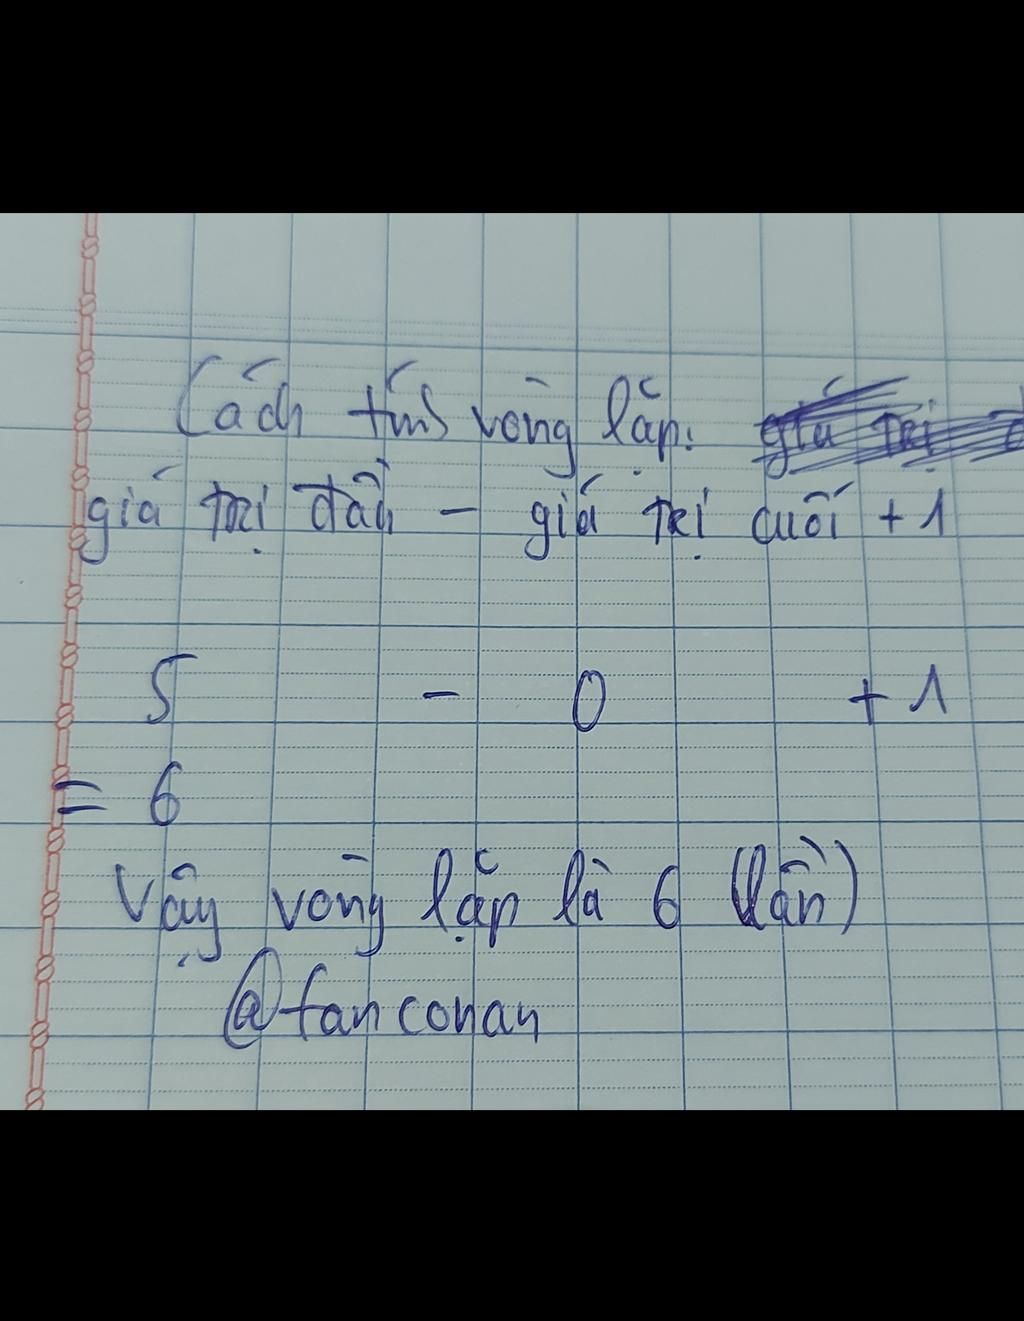 Cách tính vòng lặp:
giá trị đầu - giá trị cuối + 1
5 - 0 + 1
= 6
Vậy vòng lặp là 6 (lần)
@fanconan